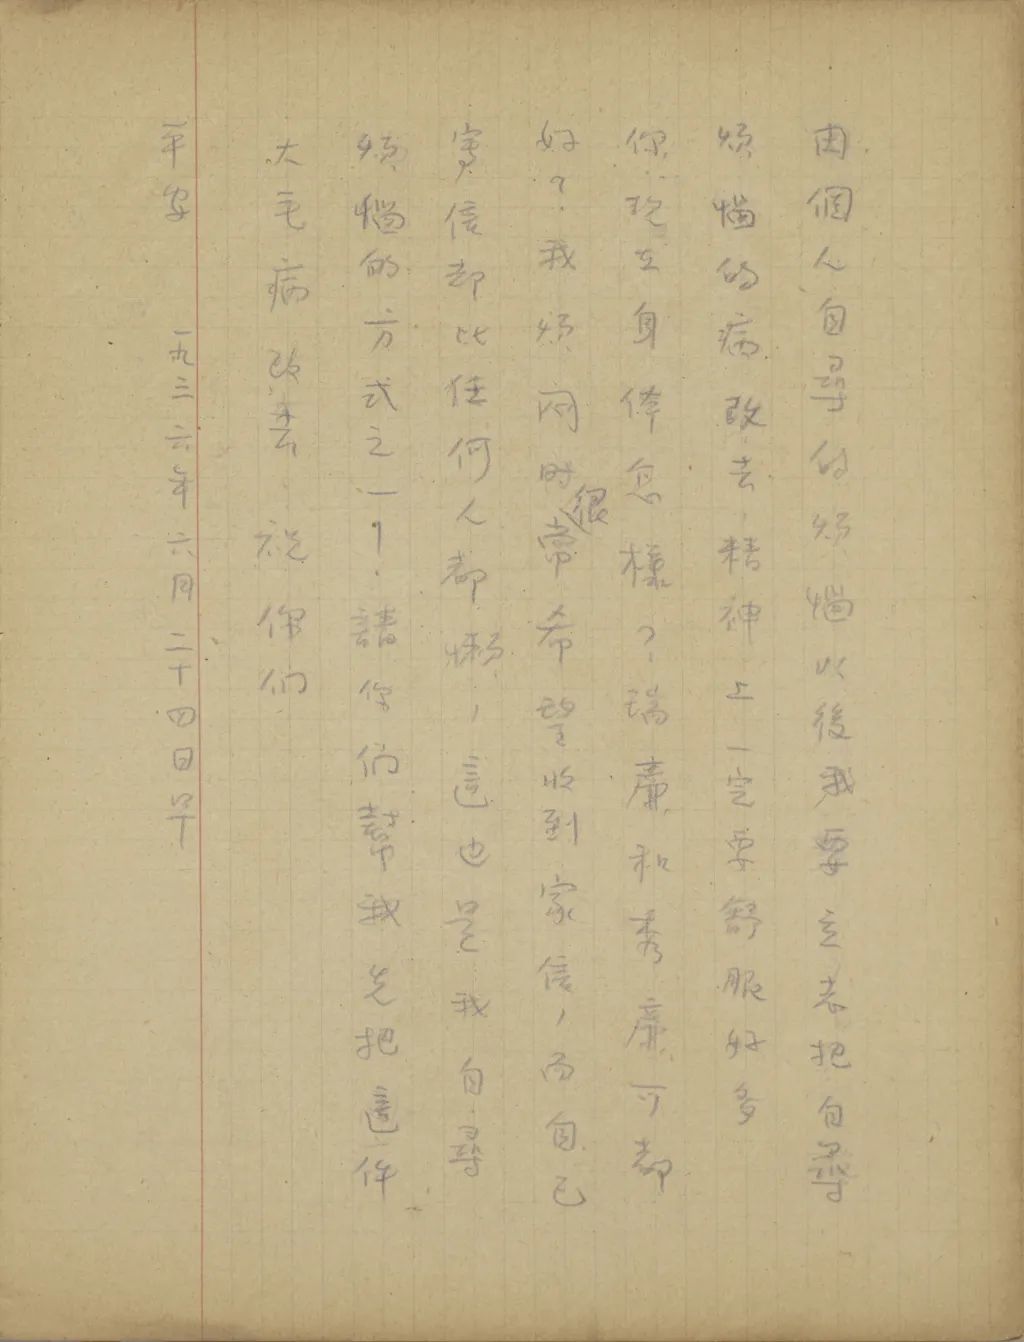 由個人自尋的煩惱以後我要立志把自尋
煩惱的病改去,精神上一定要舒服好多
你現在身体怎樣?瑞廉和秀廉可都
好?我煩悶時常很希望收到家信,而自己
寫信却比任何人都懶,這也是我自尋
煩惱的方式之一!請你們幫我先把這件
大毛病改去 祝你們
平安 一九三六年六月二十四日早